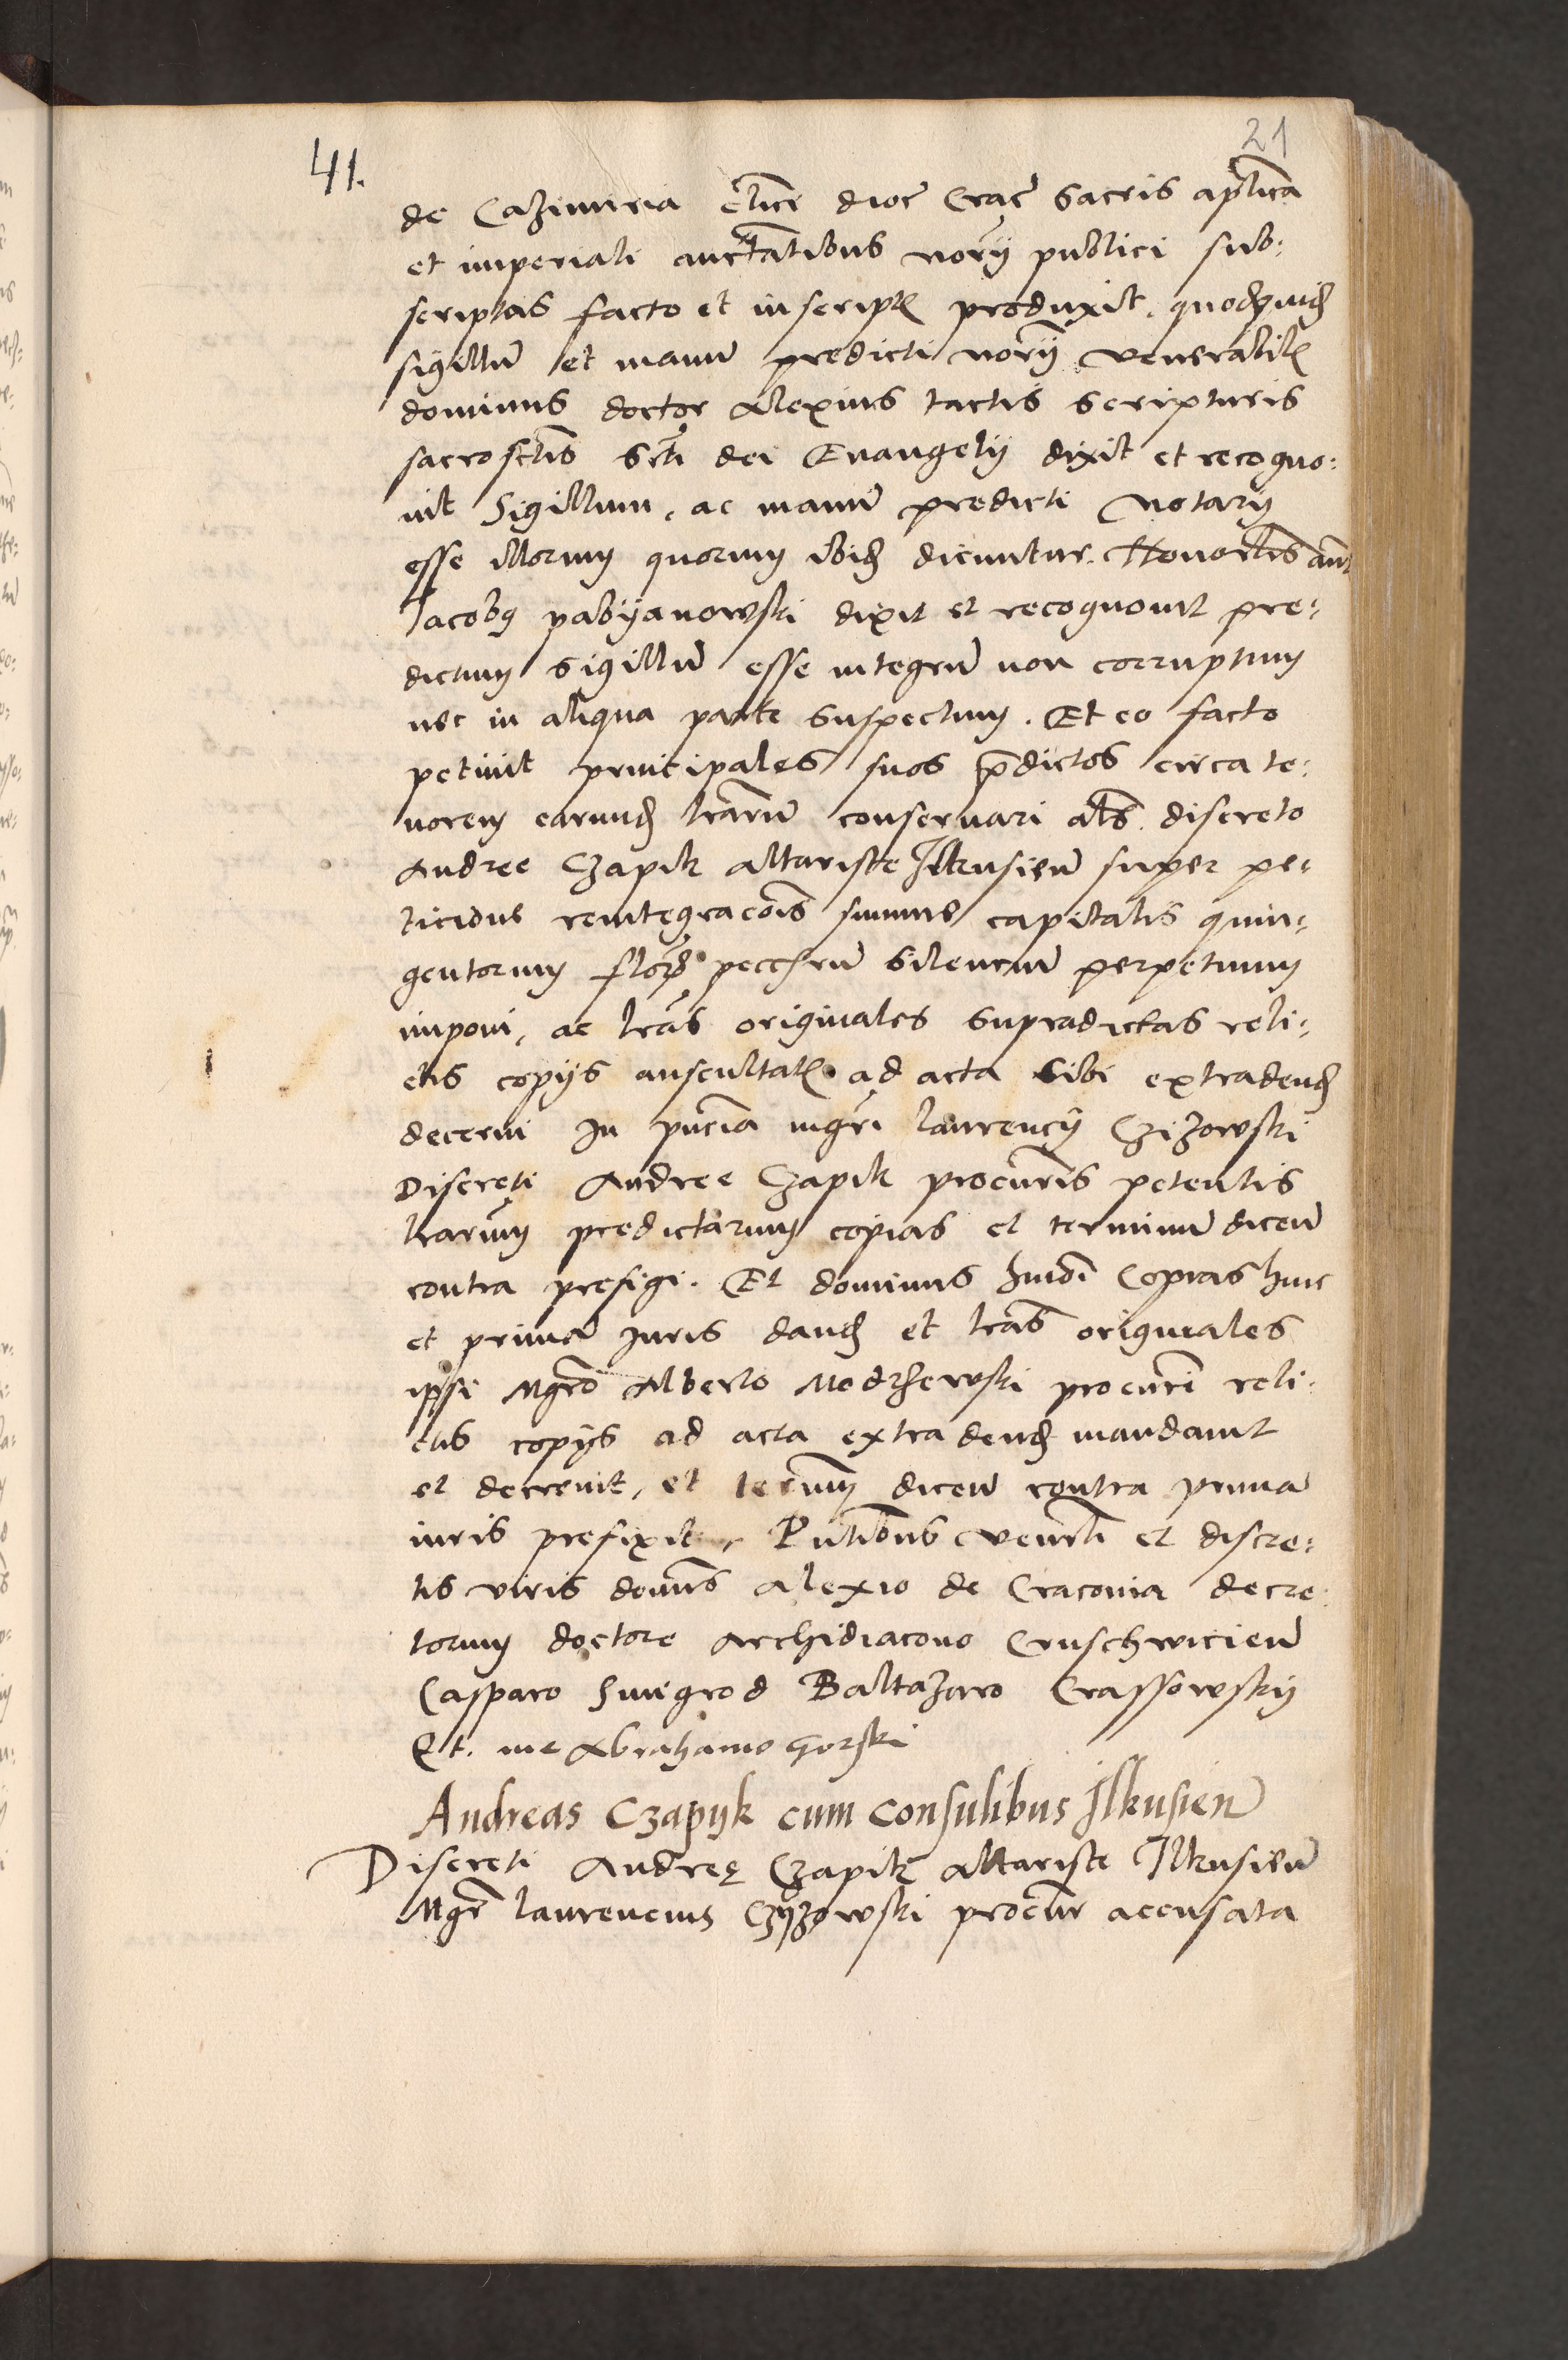 21
41.
de Cazimiria clici dioc Crac sacris aplica
et imperiali auctatibus norij publici sub:
scriptas facto et in scriptis produxit. quodquid
sigillu et manu predicti norij venerabilis
dominus doctor Alexius tactis scripturis
sacrosctis scti dei Evangelij dixit et recogno:
uit Sigillum, ac manu predicti Notarij
esse illorum quorum ibid dicuntur. Honorlis aut
Jacobus pabyanowski dixit et recognouit pre:
dictum sigillu esse integru non corruptum
nec in aliqua parte suspectum. Et eo facto
petiuit principales suos pdictos circa te:
norem earund lraru conseruari als discreto
Andree Czapik altariste Ilkusien super pe:
ticione reintegracois summe capitalis quin:
gentorum flor silenciu perpetuum
imponi, ac lras originales supradictas reli:
ctis copijs auscultatis ad acta sibi extradend
decerni In pncia mgri laurencij Czizowski
Discreti Andree Czapik procuris petentis
lrarum predictarum copias et terminu dicen
contra prefigi. Et dominus hmoi Copias hinc
et prima Juris dand et lras originales
ipsi Mgro Alberto Modrzewski procuri reli:
ctis copijs ad acta extradend mandauit
et decreuit, et termum dicen contra prima
iuris prefixit, Pntibus venrli et discre:
tis viris domis Alexio de Cracouia decre:
torum doctore Archidiacono Cruschwicien
Casparo Smigrod Baltazaro Crassowskij
Et. me Abrahamo Gorski
Andreas Czapyk cum consulibus Ilkusien
Discreti Andree Czapik altariste Ilkusien
Mgr laurencius Czyzowski procur accusata